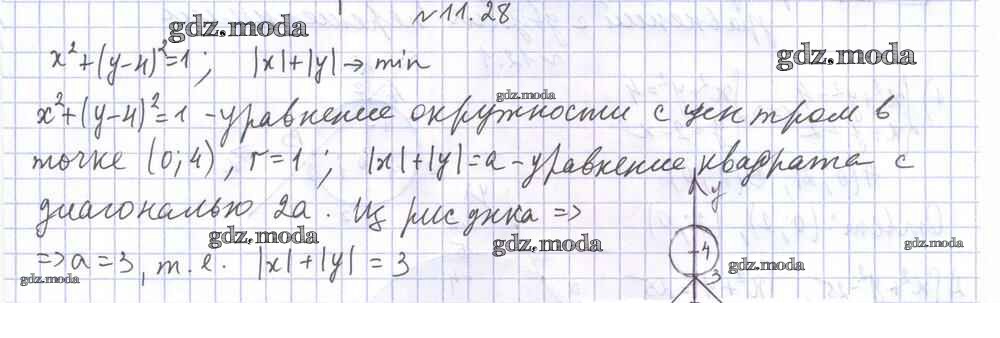 №11.28
x²+(y-4)²=1; |x|+|y|→min
x²+(y-4)²=1 - уравнение окружности с центром в
точке (0;4), r=1; |x|+|y|=a - уравнение квадрата с
диагональю 2a. Из рисунка =>
=> a=3, т.е. |x|+|y|=3
y
4
3
gdz.moda
gdz.moda
gdz.moda
gdz.moda
gdz.moda
gdz.moda
gdz.moda
gdz.moda